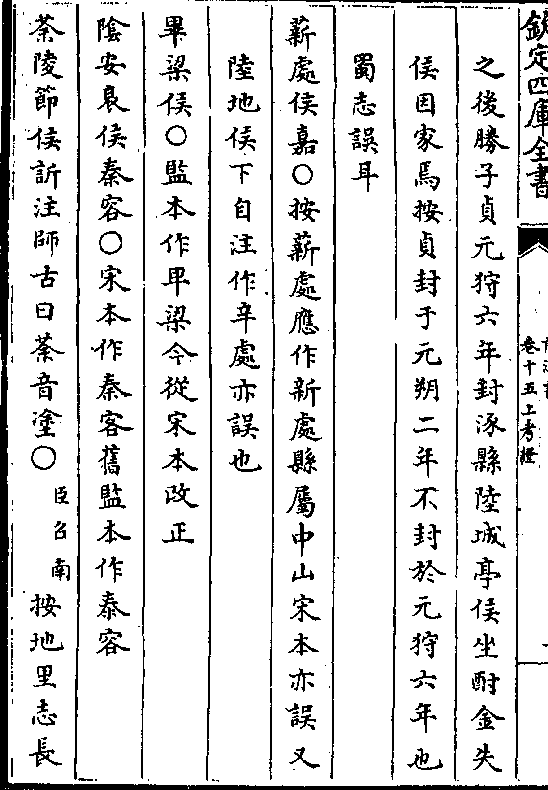 欽定四庫全書
卷十五上考證
之後勝子貞元狩六年封涿縣陸城亭侯坐酎金失
侯因家焉按貞封于元朔二年不封於元狩六年也
蜀志誤耳
薪處侯嘉〇按薪處應作新處縣屬中山宋本亦誤又
陸地侯下自注作辛處亦誤也
畢梁侯〇監本作卑梁今從宋本改正
陰安哀侯秦容〇宋本作秦客舊監本作泰容
荼陵節侯訢注師古曰荼音塗〇臣召南按地里志長